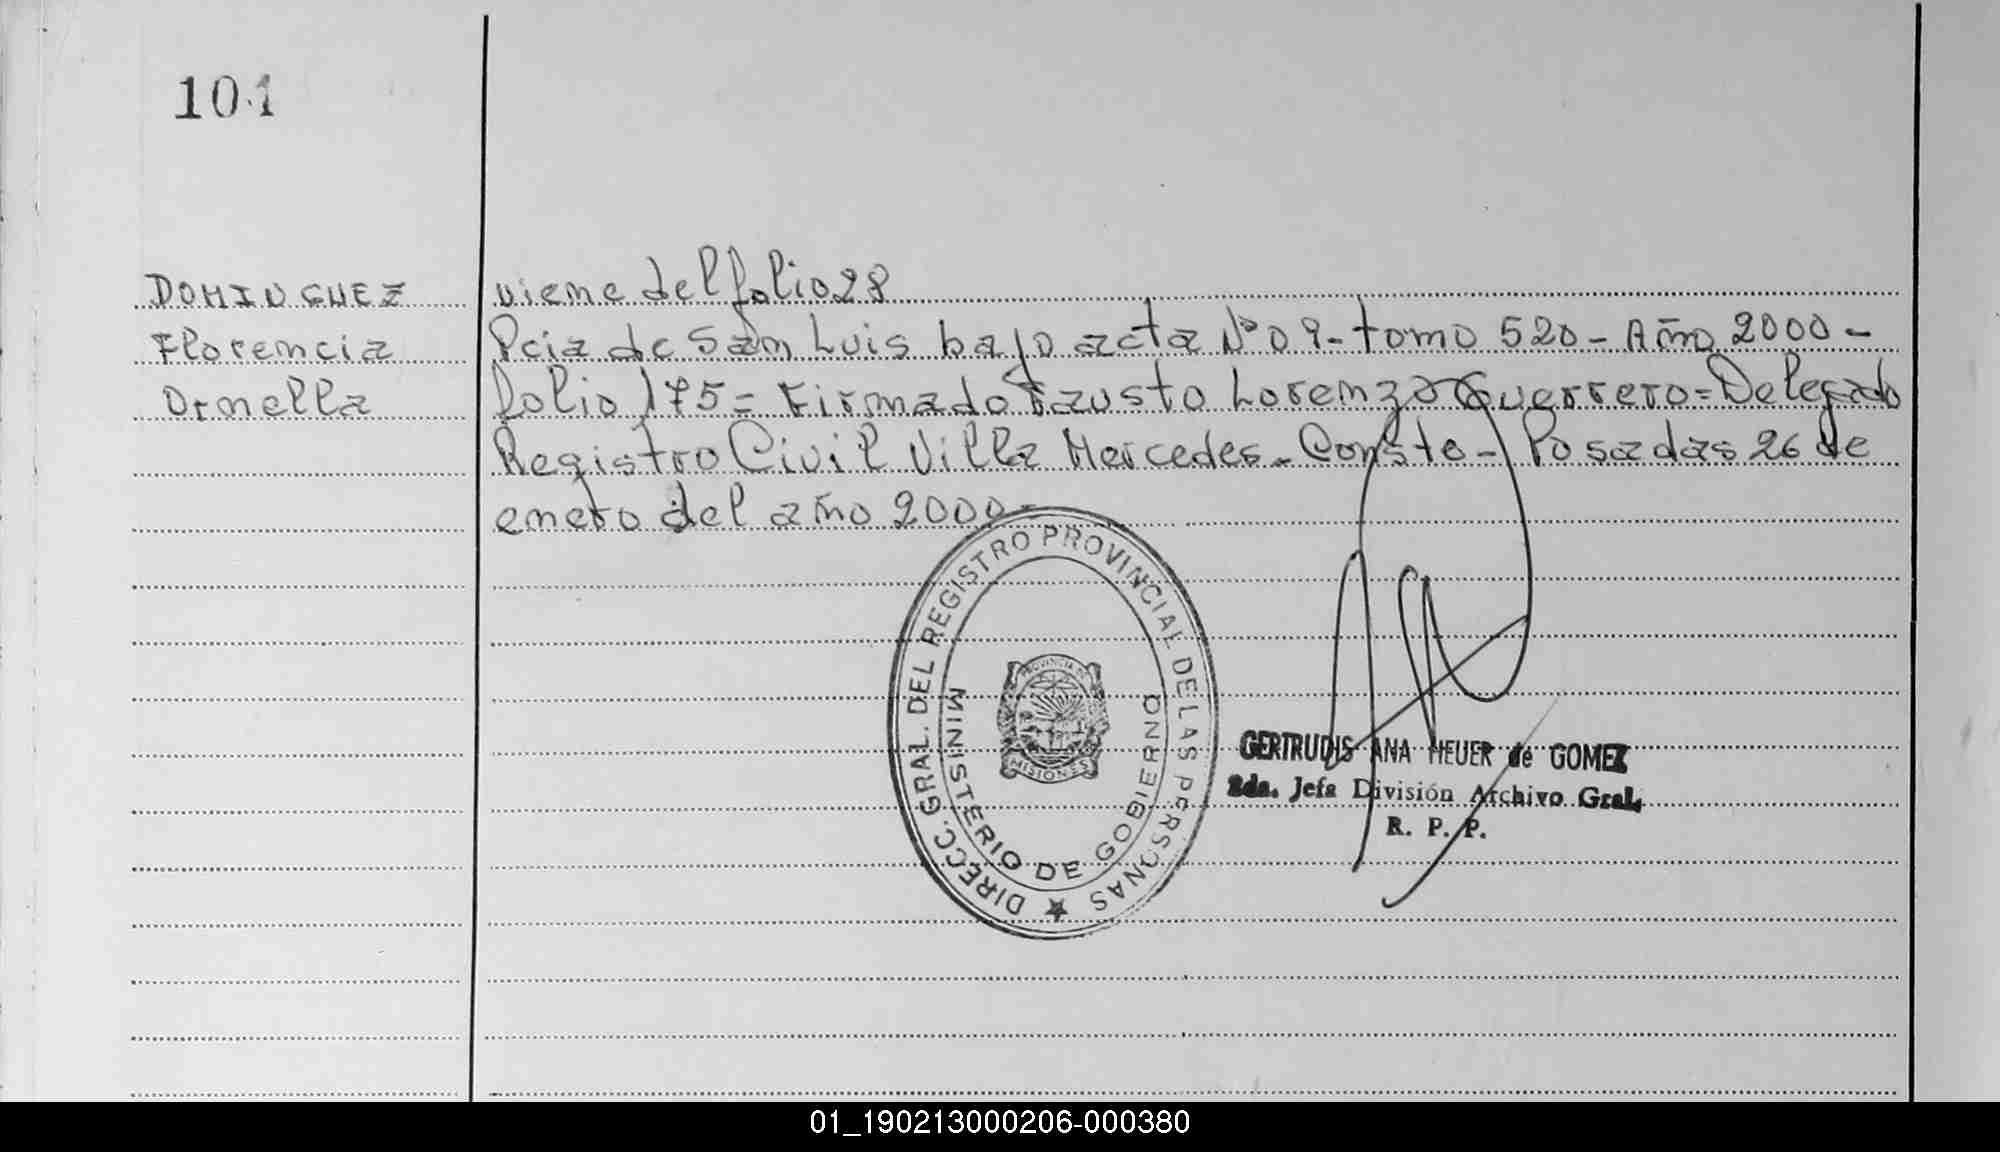 101
DOMINGUEZ
Florencia
Ornella
viene del folio 28
Pcia de San Luis bajo acta Nº 09 - tomo 520 - Año 2000 -
folio 175 = Firmado Fausto Lorenzo Guerrero = Delegado
Registro Civil Villa Mercedes - Conste - Posadas 26 de
enero del año 2000 -
DIRECC. GRAL. DEL REGISTRO PROVINCIAL DE LAS PERSONAS
MINISTERIO DE GOBIERNO
PROVINCIA DE
MISIONES
GERTRUDIS ANA HEUER de GOMEZ
2da. Jefa División Archivo Gral.
R. P. P.
01_190213000206-000380